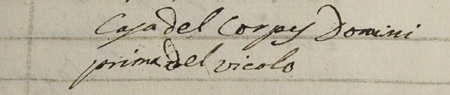 Casa del Corpus Domini
prima del vicolo